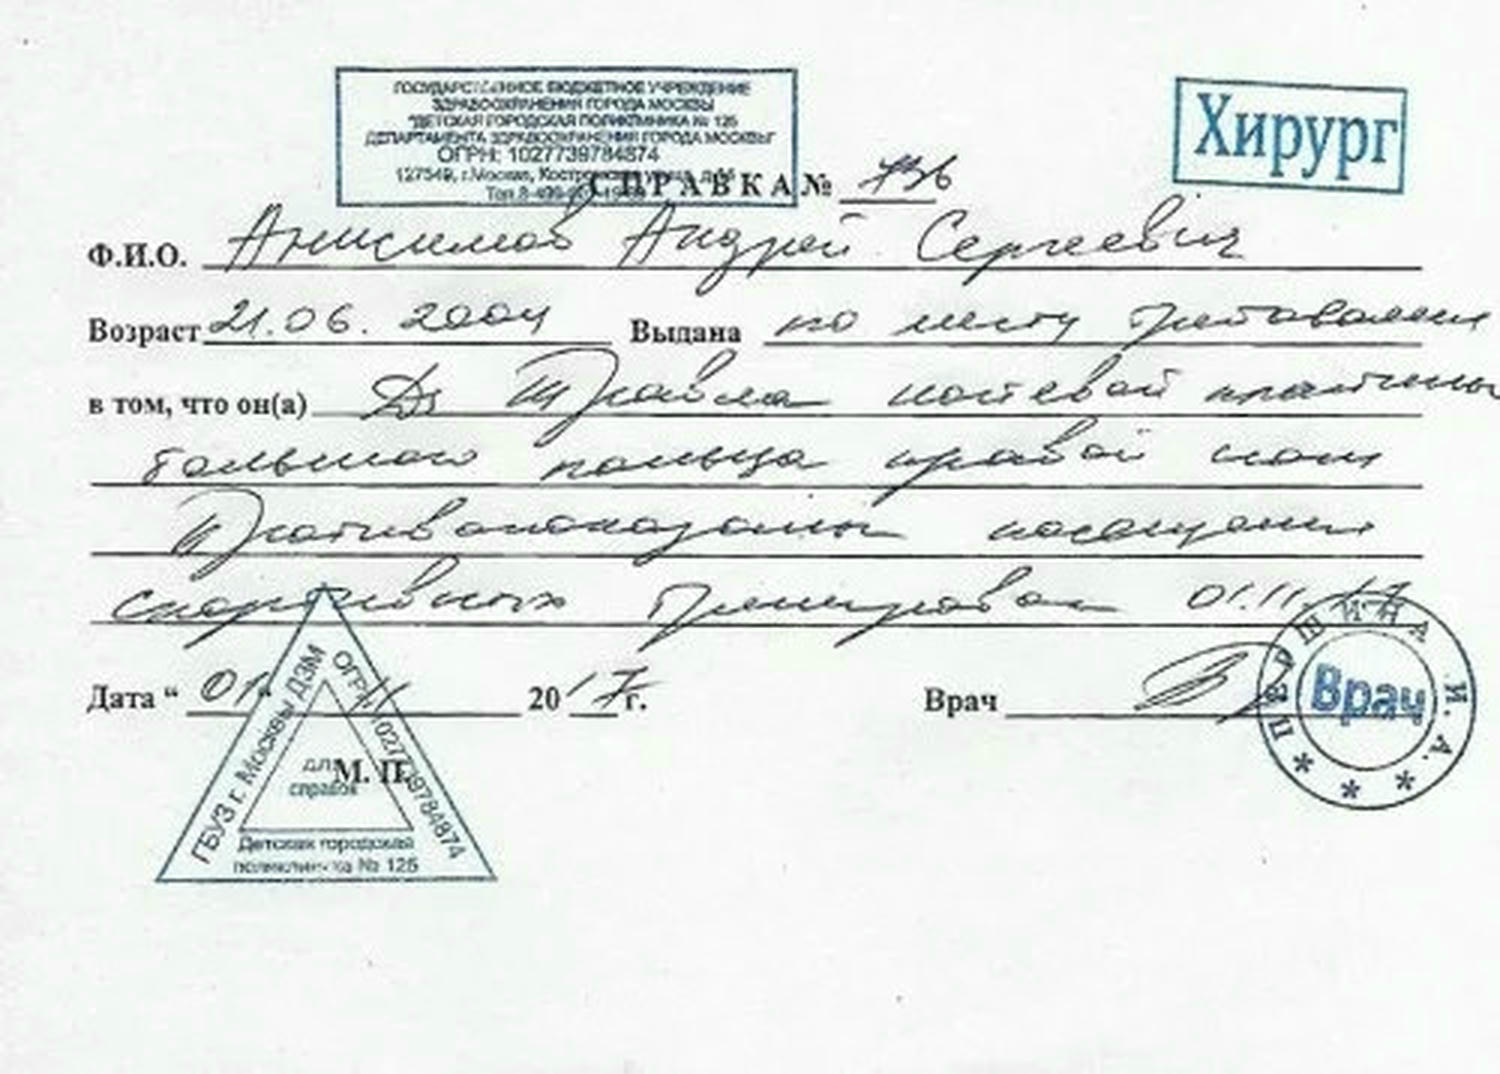 ГОСУДАРСТВЕННОЕ БЮДЖЕТНОЕ УЧРЕЖДЕНИЕ
ЗДРАВООХРАНЕНИЯ ГОРОДА МОСКВЫ
"ДЕТСКАЯ ГОРОДСКАЯ ПОЛИКЛИНИКА № 125
ДЕПАРТАМЕНТА ЗДРАВООХРАНЕНИЯ ГОРОДА МОСКВЫ"
ОГРН: 1027739784874
127549, г.Москва, Костромская улица, д.
Тел.8-499-
Хирург
СПРАВКА № 736
Ф.И.О. Анисимов Андрей Сергеевич
Возраст 21.06.2004 Выдана по месту требования
в том, что он(а) Ds травма ногтевой пластины
большого пальца правой ноги
Противопоказаны посещения
спортивных тренировок 01.11.17
Дата "01" 11 2017г. Врач
ПЕРШИНА И. А.
Врач
М. П.
ГБУЗ г. Москвы ДЗМ
ОГРН 1027739784874
для
справок
Детская городская
поликлиника № 125